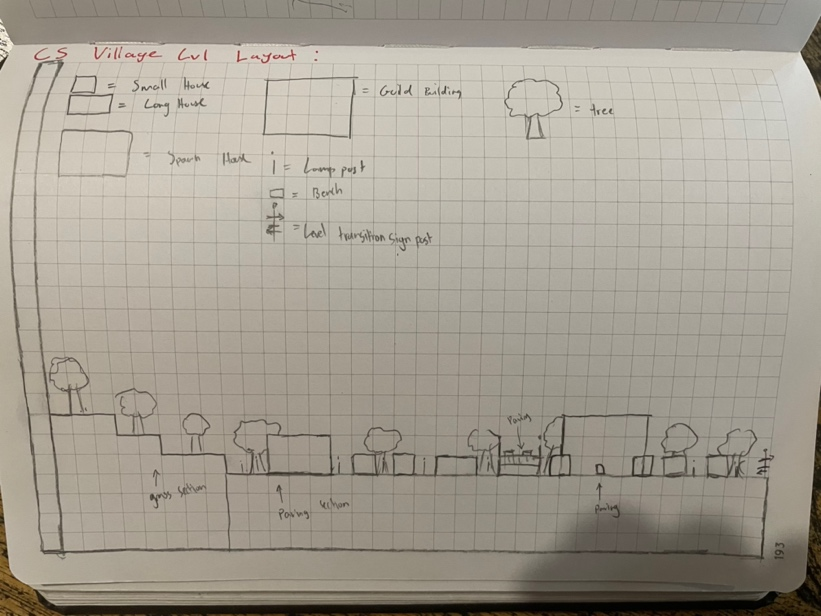 CS Village Lvl Layout :
= Small House
= Long House
= Guild Building
= tree
= Spawn House
= Lamp post
= Bench
= Level transition sign post
Paving
grass section
Paving section
Paving
193